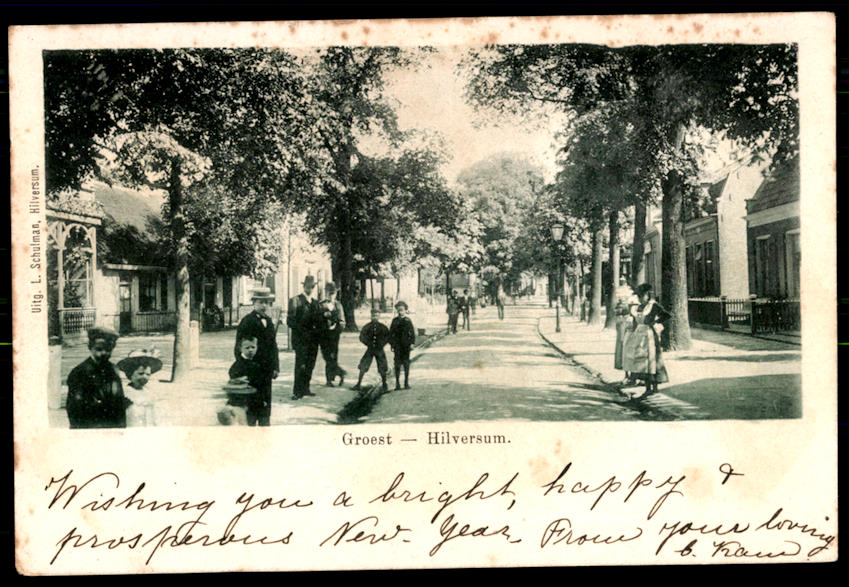 Uitg. L. Schulman, Hilversum.
Groest — Hilversum.
Wishing you a bright, happy &
prosperous New-Year From your loving